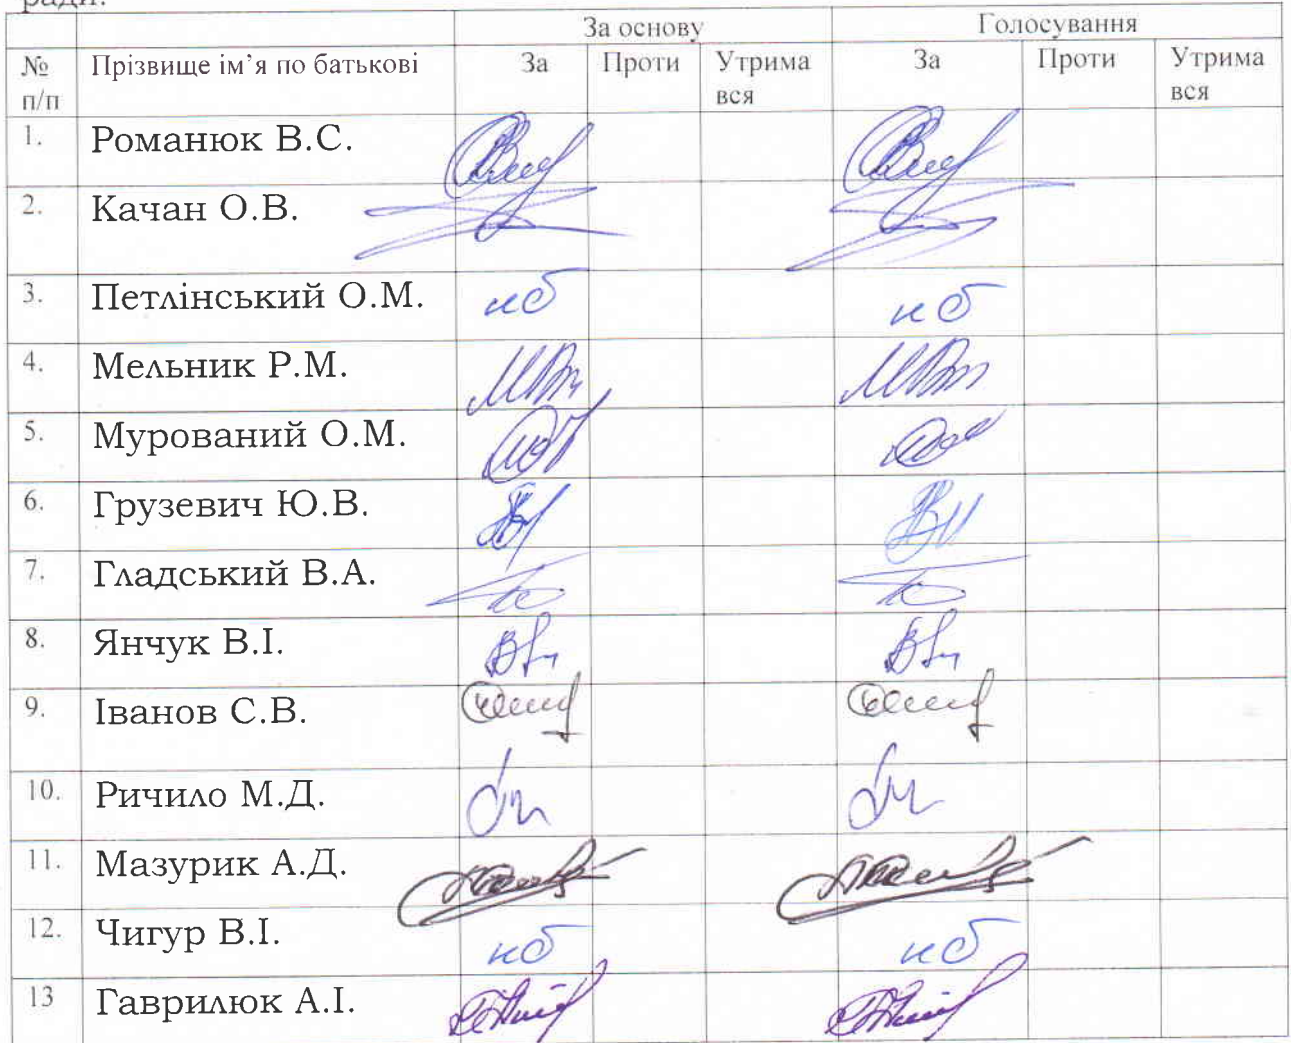 ради.
За основу Голосування
№ п/п Прізвище ім’я по батькові За Проти Утрима вся За Проти Утрима вся
1. Романюк В.С.
2. Качан О.В.
3. Петлінський О.М. нб нб
4. Мельник Р.М.
5. Мурований О.М.
6. Грузевич Ю.В.
7. Гладський В.А.
8. Янчук В.І.
9. Іванов С.В.
10. Ричило М.Д.
11. Мазурик А.Д.
12. Чигур В.І. нб нб
13 Гаврилюк А.І.